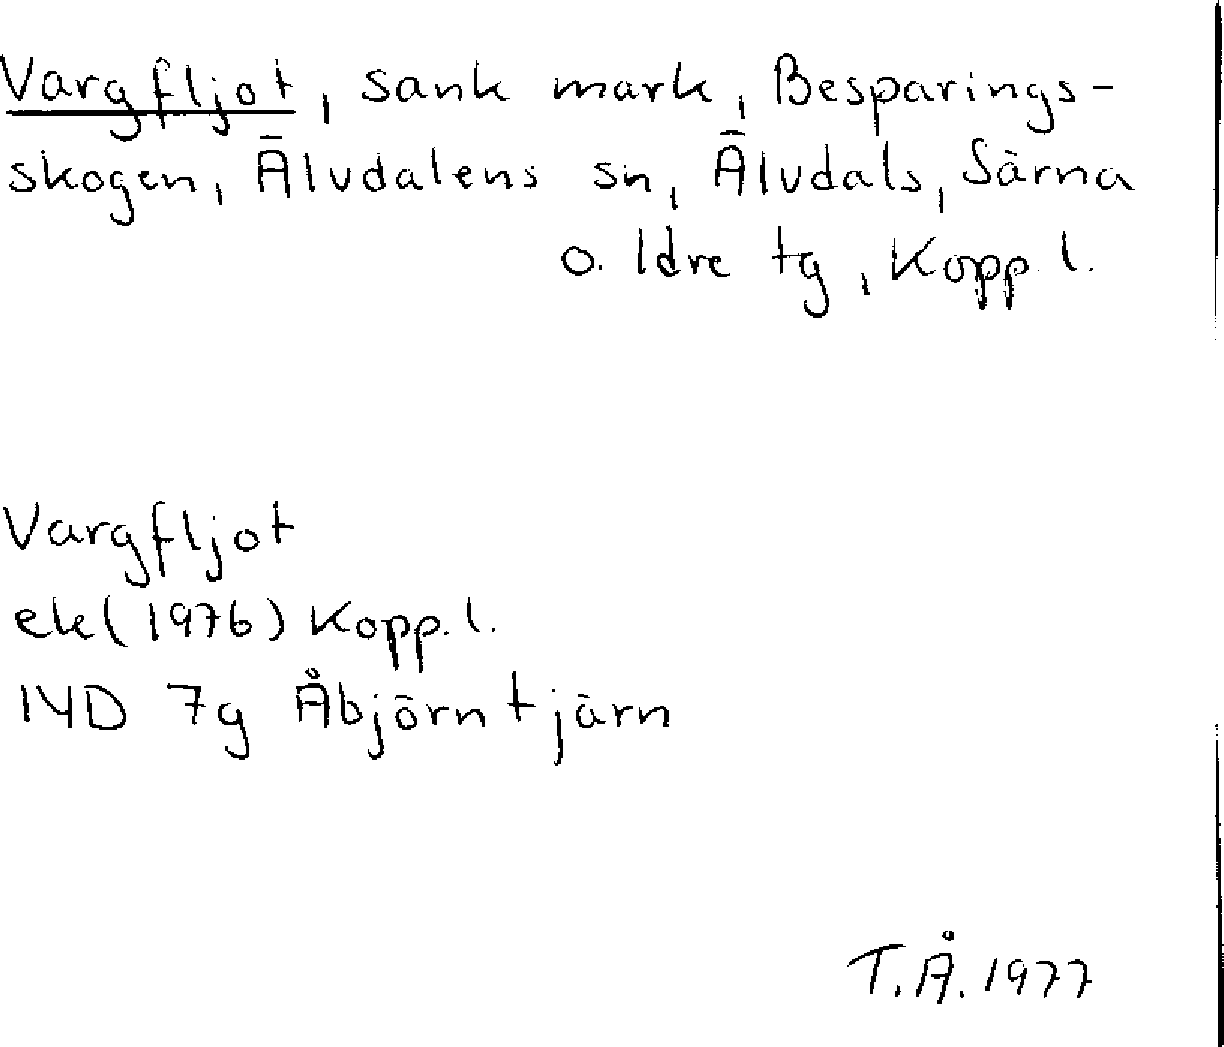 Vargfljot, sank mark, Besparings-
skogen, Älvdalens sn, Älvdals, Särna
o. Idre tg, Kopp. l.
Vargfljot
ek (1976) Kopp. l.
14D 7g Åbjörntjärn
T.Å. 1977